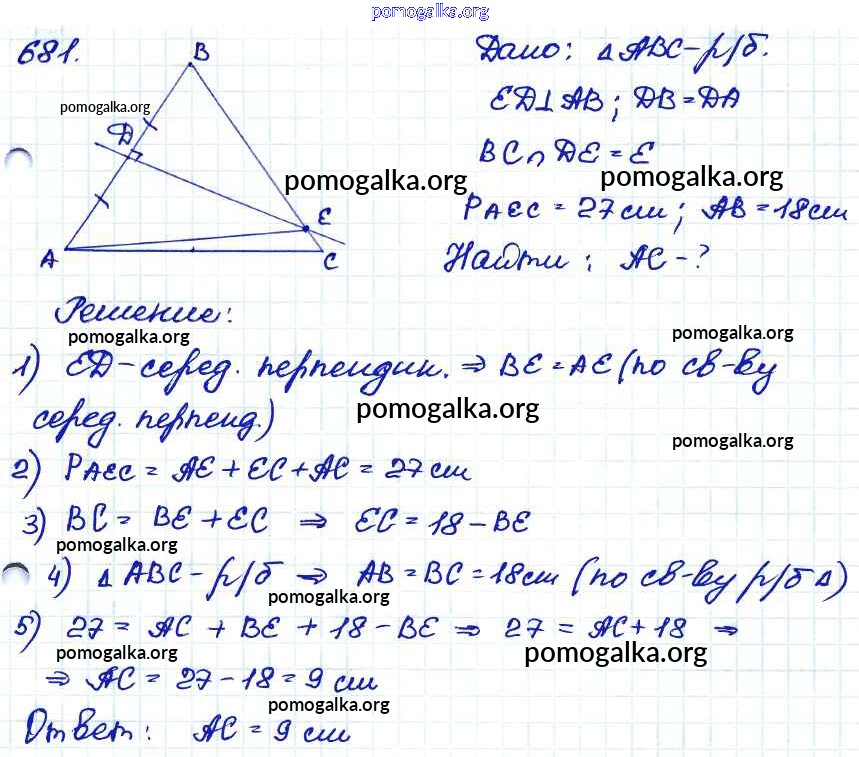 pomogalka.org
681.
B
pomogalka.org
D
E
A
C
pomogalka.org
Дано: △ABC-р/б.
ED⊥AB; DB=DA
BC∩DE=E
pomogalka.org
PAEC=27см; AB=18см
Найти: AC-?
Решение:
pomogalka.org
pomogalka.org
1) ED-серед. перпендик. ⇒ BE=AE (по св-ву
серед. перпенд.)
pomogalka.org
pomogalka.org
2) PAEC = AE + EC + AC = 27 см
3) BC = BE + EC ⇒ EC = 18 - BE
pomogalka.org
4) △ABC - р/б ⇒ AB = BC = 18см (по св-ву р/б △)
pomogalka.org
5) 27 = AC + BE + 18 - BE ⇒ 27 = AC + 18 ⇒
pomogalka.org
pomogalka.org
⇒ AC = 27 - 18 = 9 см
pomogalka.org
Ответ: AC = 9 см